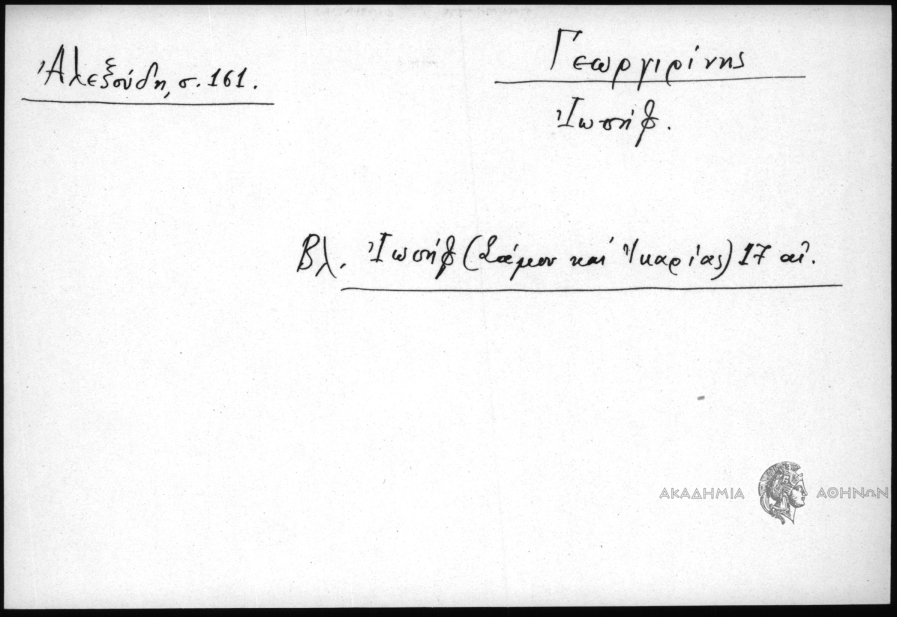 Ἀλεξούδη, σ. 161.
Γεωργιρίνης
Ἰωσήφ.
Βλ. Ἰωσήφ (Σάμου καί Ἰκαρίας) 17 αἰ.
ΑΚΑΔΗΜΙΑ ΑΘΗΝΩΝ